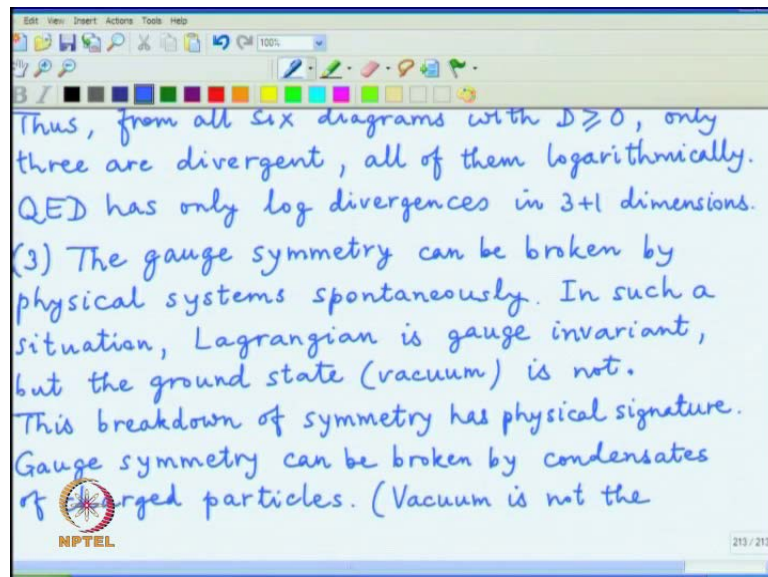 Edit View Insert Actions Tools Help
100%
B I
Thus, from all six diagrams with D ≥ 0, only
three are divergent, all of them logarithmically.
QED has only log divergences in 3+1 dimensions.
(3) The gauge symmetry can be broken by
physical systems spontaneously. In such a
situation, Lagrangian is gauge invariant,
but the ground state (vacuum) is not.
This breakdown of symmetry has physical signature.
Gauge symmetry can be broken by condensates
of charged particles. (Vacuum is not the
NPTEL
213 / 213